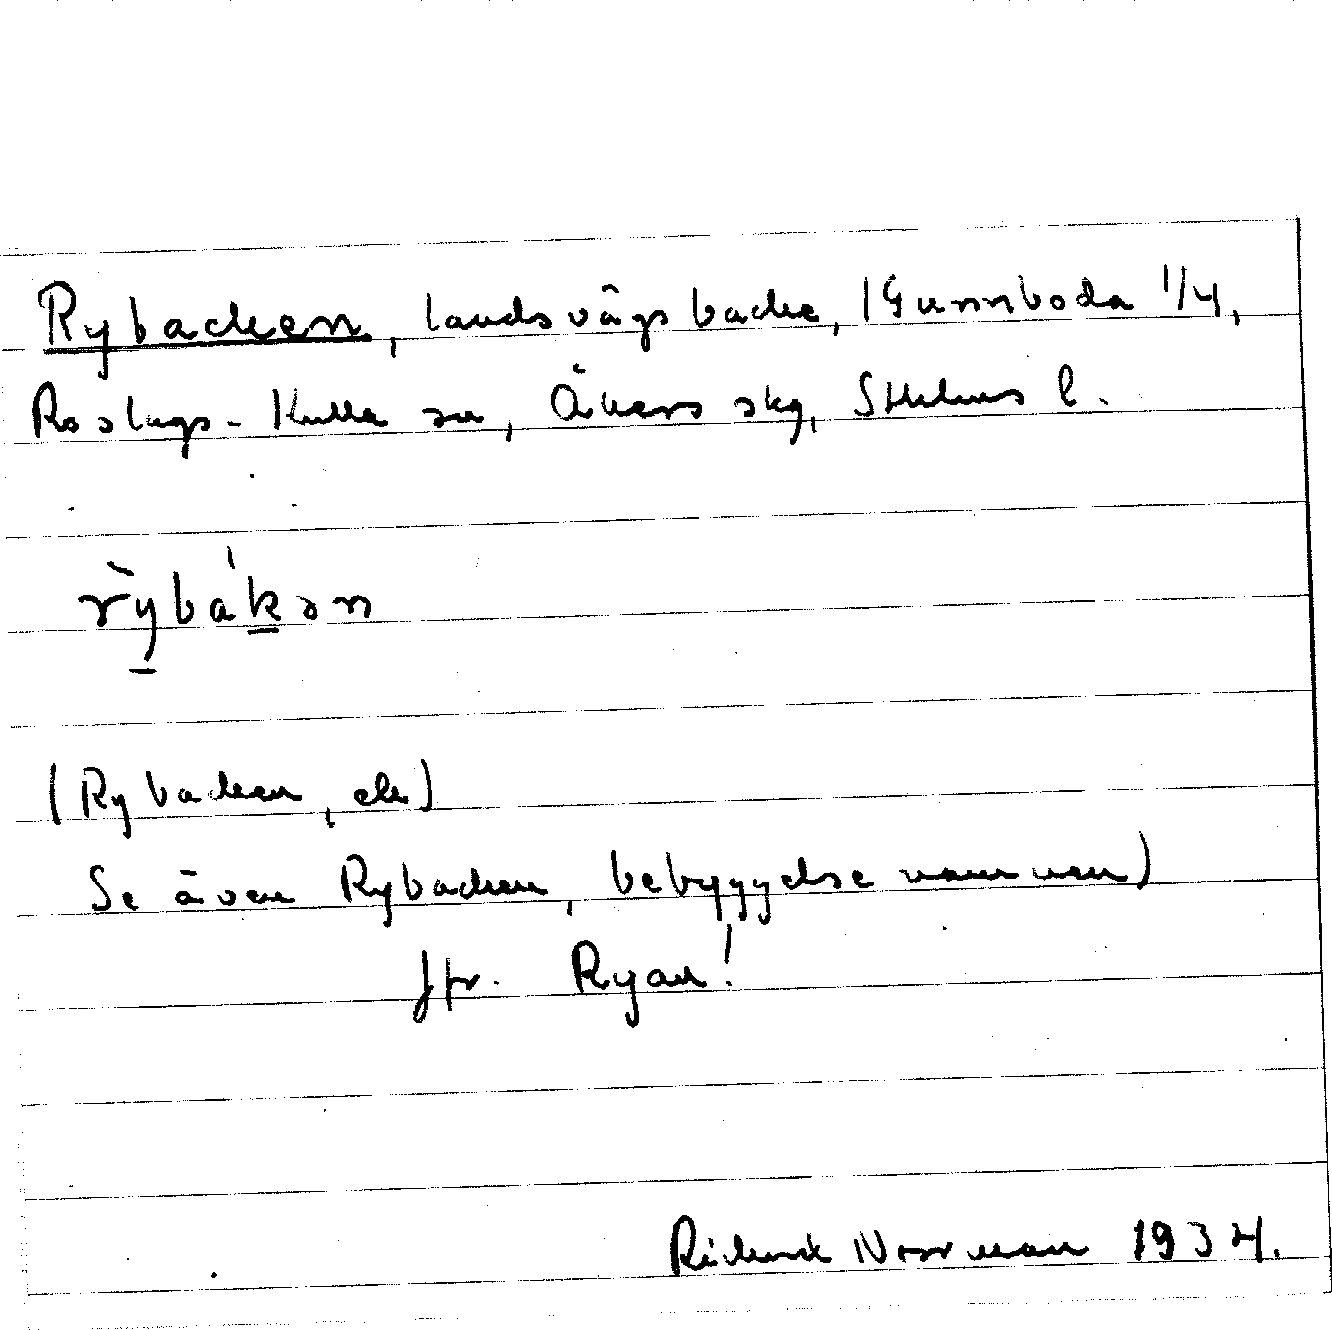 Rybacken, landsvägsbacke, Gunnboda 1/4,
Roslags-Kulla sn, Åkers skg, Sthlms l.
rỳbákən
(Rybacken, ek)
Se även Rybacken, bebyggelsenamnen)
Jfr. Ryan!
Rickard Norrman 1934.